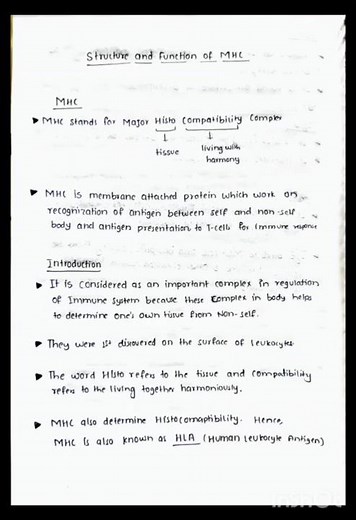 Structure and Function of MHC
MHC
▶ MHC stands for Major Histo Compatibility Complex
↓ ↓
tissue living with
harmony
▶ MHC is membrane attached protein which work on
recognization of antigen between self and non-self
body and antigen presentation to T-cells for immune response
Introduction
▶ It is considered as an important complex in regulation
of Immune system because these complex in body helps
to determine one's own tissue from Non-self.
▶ They were 1st disovered on the surface of leukocytes
▶ The word Histo refers to the tissue and compatibility
refers to the living together harmoniously.
▶ MHC also determine Histocomaptibility. Hence,
MHC is also known as HLA (Human Leukocyte Antigen)